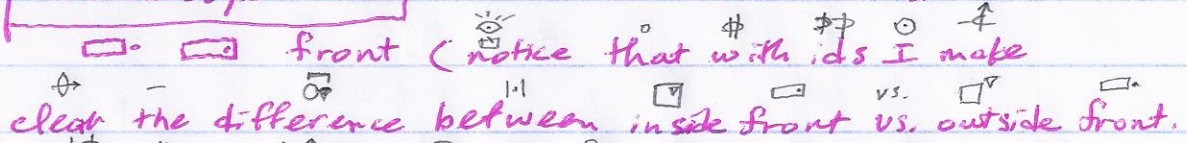 front (notice that with ids I make
vs.
clear the difference between inside front vs. outside front.